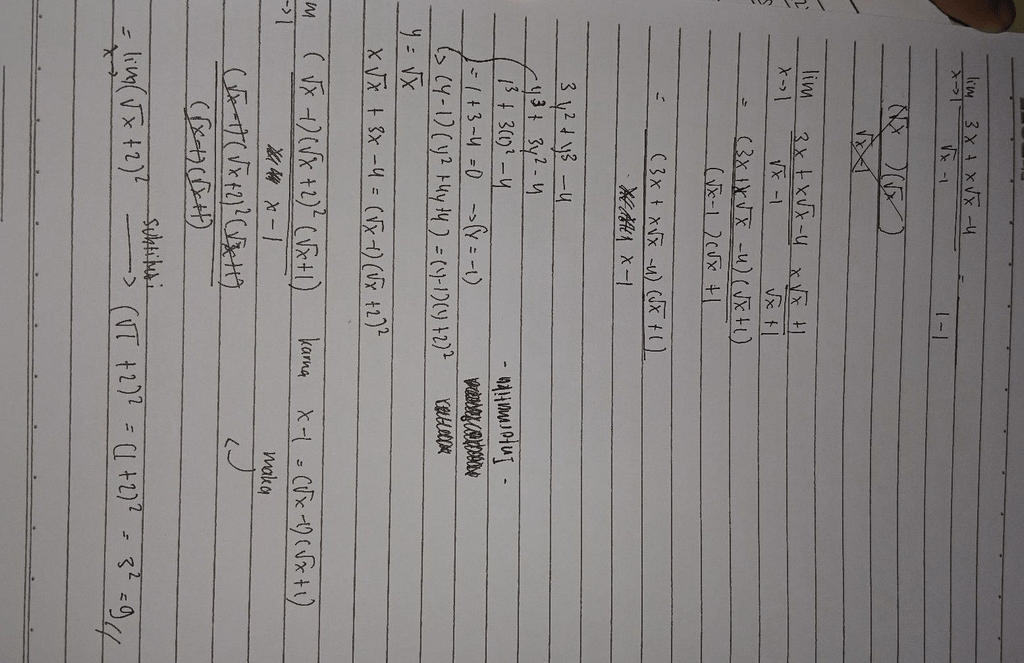 lim x→1 3x + x√x - 4 / √x - 1 = 1 - 1
(√x )(√x )
√x
lim x→1 3x + x√x - 4 / √x - 1 x √x + 1 / √x + 1
= (3x + x√x - 4)(√x + 1) / (√x - 1)(√x + 1
= (3x + x√x - 4)(√x + 1) / x - 1
3y² + y³ - 4
y³ + 3y² - 4
1³ + 3(1)² - 4
= 1 + 3 - 4 = 0 → (y = -1)
↳ (y - 1)(y² + 4y + 4) = (y - 1)(y + 2)²
y = √x
x√x + 3x - 4 = (√x - 1)(√x + 2)²
(√x - 1)(√x + 2)²(√x + 1) / x - 1 karna x - 1 = (√x - 1)(√x + 1)
maka
(√x - 1)(√x + 2)²(√x + 1) / (√x - 1)(√x + 1)
= lim (√x + 2)² → (√1 + 2)² = (1 + 2)² = 3² = 9 //